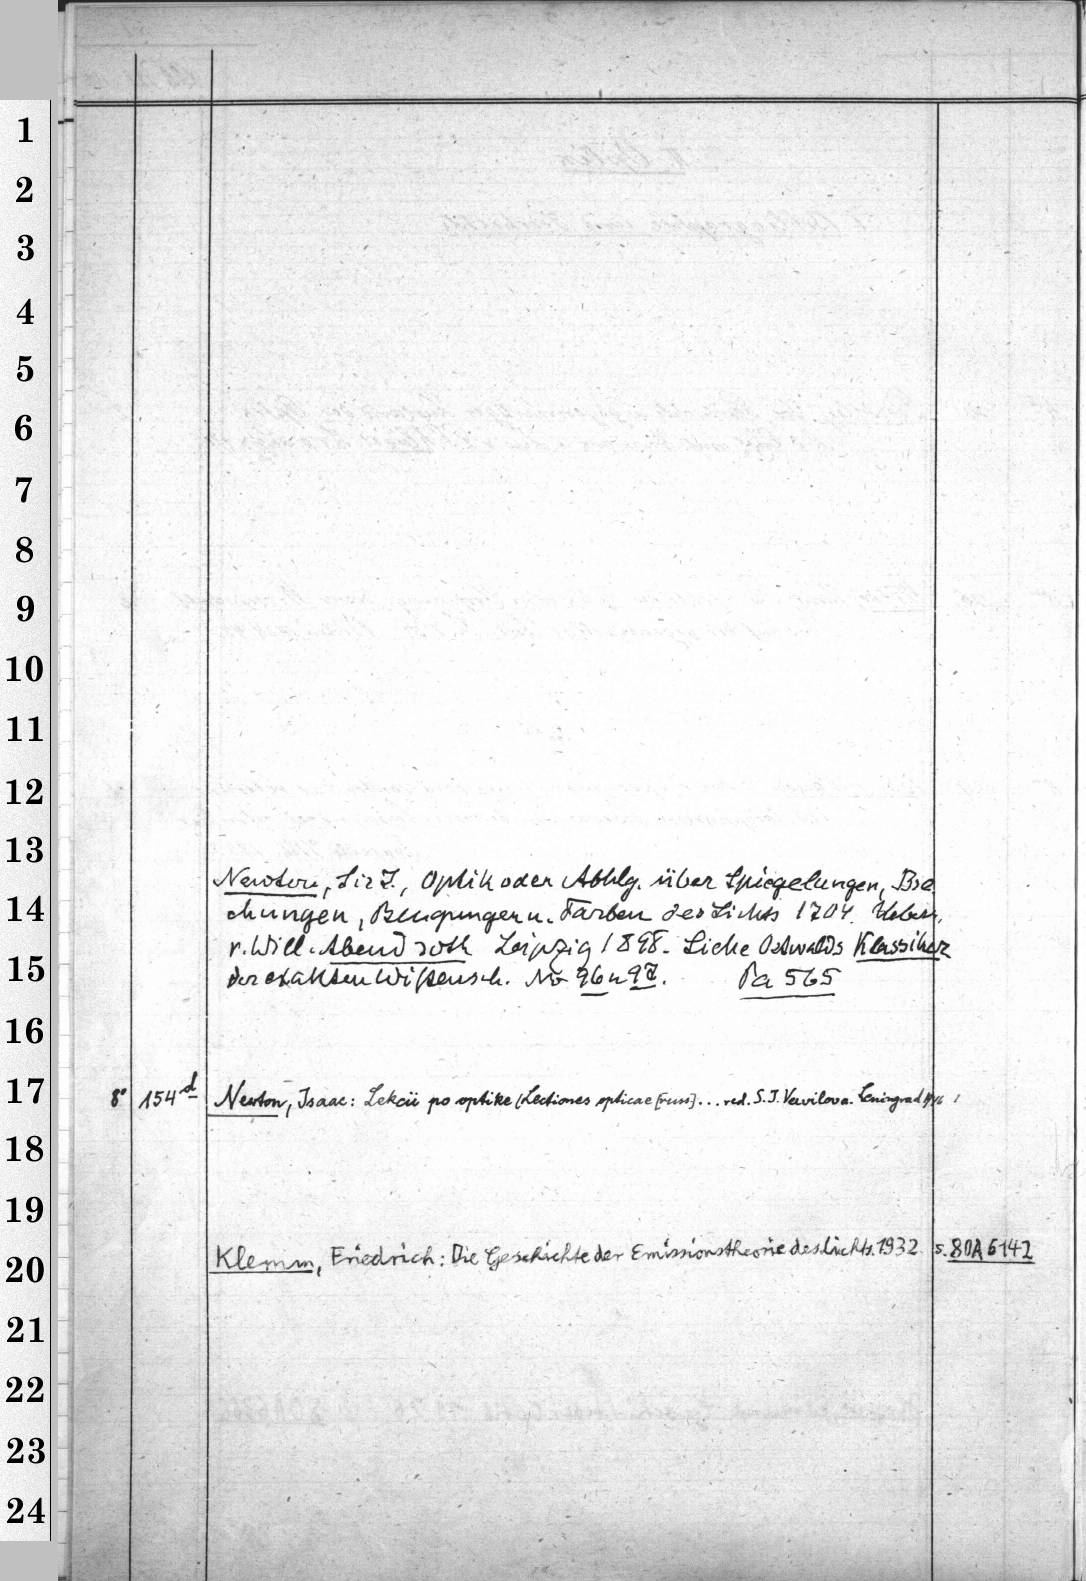 1
2
3
4
5
6
7
8
9
10
11
12
13
14
15
16
17
18
19
20
21
22
23
24
Newton, Sir I., Optik oder Abhlg. über Spiegelungen, Bre
chungen, Beugungen u. Farben des Lichts 1704. Uebers.
v. Will. Abendroth Leipzig 1898. Siehe Ostwalds Klassiker
der exakten Wissensch. No 96 u 97. Pa 565
8° 154d Newton, Isaac: Lekcii po optike (Lectiones opticae [russ] ... red. S. I. Vavilova. Leningrad 1946 1
Klemm, Friedrich: Die Geschichte der Emissionstheorie des Lichts. 1932. s. 80A6142